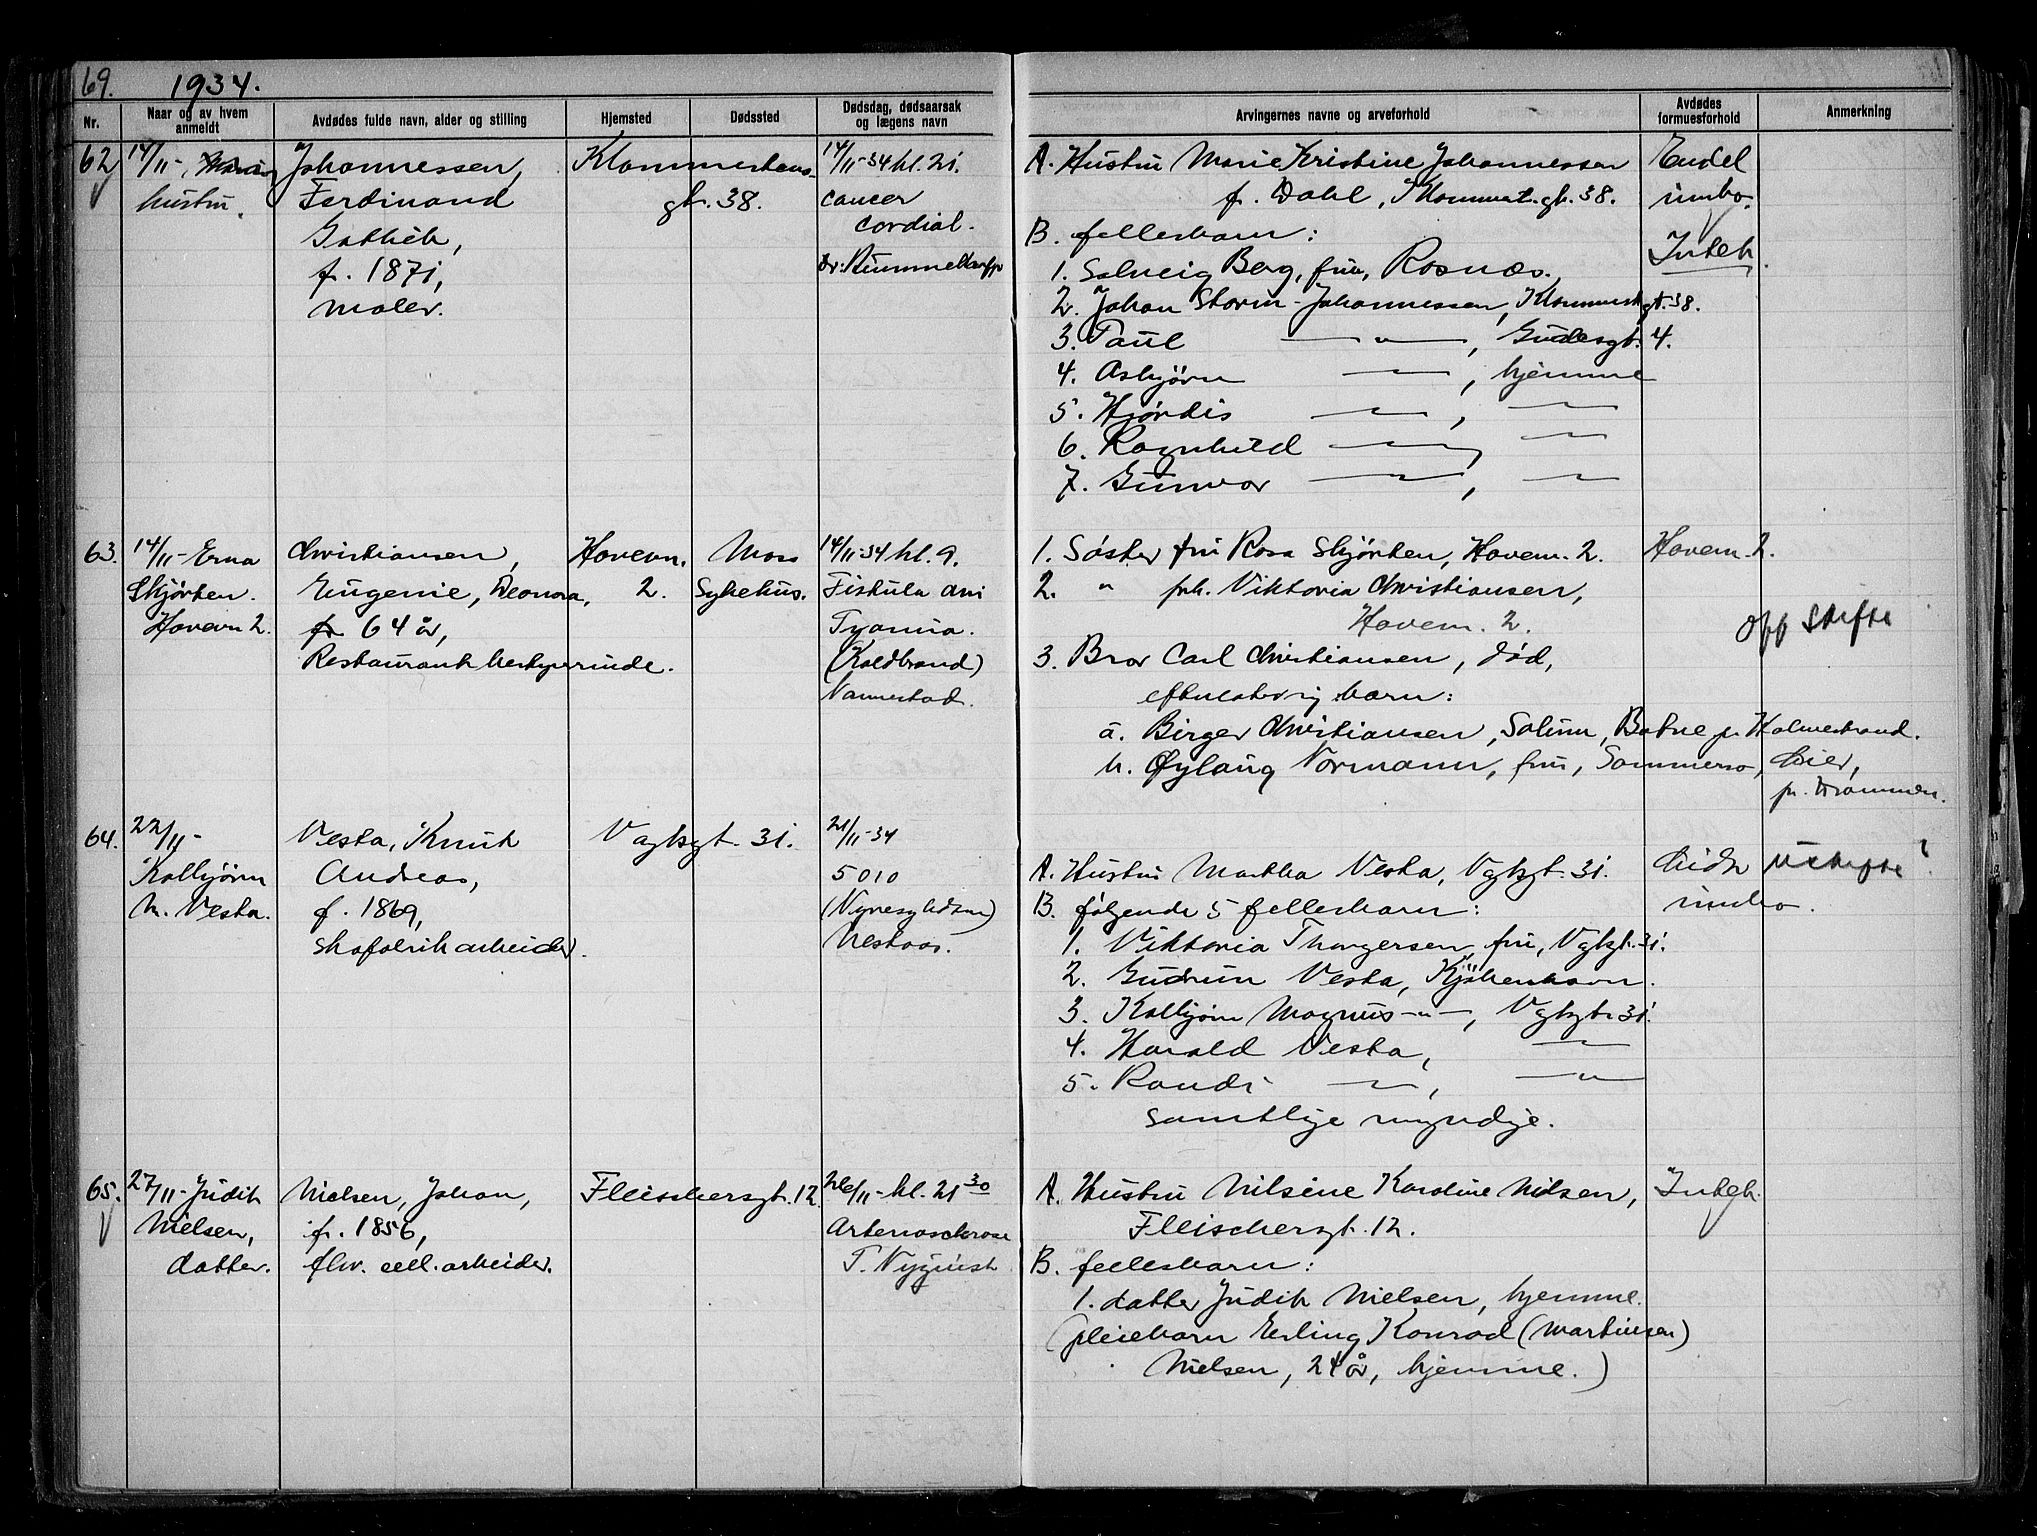 69. 1934.
Nr.
Naar og av hvem anmeldt
Avdødes fulde navn, alder og stilling
Hjemsted
Dødssted
Dødsdag, dødsaarsak og lægens navn
Arvingernes navne og arveforhold
Avdødes formuesforhold
Anmerkning
62
14/11-
hustru.
Johannessen,
Ferdinand
f. 1871,
maler.
gt. 38.
14/11-34 kl. 21.
cancer
cordial.
A. Hustru Marie Kristine Johannessen
f. Dahl, gt. 38.
B. fellesbarn:
1. Solveig Berg, frue, Rosnæs.
2. Johan Storm-Johannessen, gt. 38.
3. Paul —"—, Gudesgt. 4.
4. Asbjørn —"—, hjemme
5. Hjørdis —"—, —"—
6. Ragnhild —"—, —"—
7. Gunvor —"—, —"—
Endel
innbo.
Inteb.
63.
14/11- Erna
Skjørten.
Hovevn 2.
Christiansen,
Eugenie, Deonora,
64 år,
Restaurantbestyrerinde.
Hovevn.
2.
Moss
Sykehus.
14/11-34 kl. 9.
Fistula ani
(Koldbrand)
Vannestad.
1. Søster fru Rosa Skjørten, Hovevn. 2.
2. " frk. Viktoria Christiansen,
Hovevn. 2.
3. Bror Carl Christiansen, død,
barn:
a. Birger Christiansen, Solum, Botne pr Holmestrand.
b. Øylaug Normann, frue, Lier,
pr. Drammen.
Hovevn. 2.
Off Skifte
64.
22/11-
Kolbjørn
M. Vesta.
Vesta, Knut
Andreas,
f. 1869,
skofabrikarbeider.
Vogtsgt. 31.
21/11-34
5010
Nestaas.
A. Hustru Martha Vesta, Vgtsgt. 31.
B. følgende 5 fellesbarn:
1. Viktoria Thorgersen, frue, Vgtsgt. 31.
2. Gudrun Vesta, Kjøbenhavn.
3. Kolbjørn Magnus —"—, Vgtsgt 31.
4. Harald Vesta, —"—
5. Randi —"—, —"—
samtlige myndige.
Lidt
innbo.
Uskifte?
65.
27/11- Judith
Nielsen,
datter.
Nielsen, Johan,
f. 1856,
fhv. cell. arbeider.
Fleischersgt. 12.
26/11- kl. 21 30
Arteriosclerose
T. Nyquist
A. Hustru Nilsine Karoline Nielsen,
Fleischersgt. 12.
B. fellesbarn:
1. datter Judith Nielsen, hjemme.
(pleiebarn Erling Konrad (Martinsen)
Nielsen, 24 år, hjemme.)
Inteb.